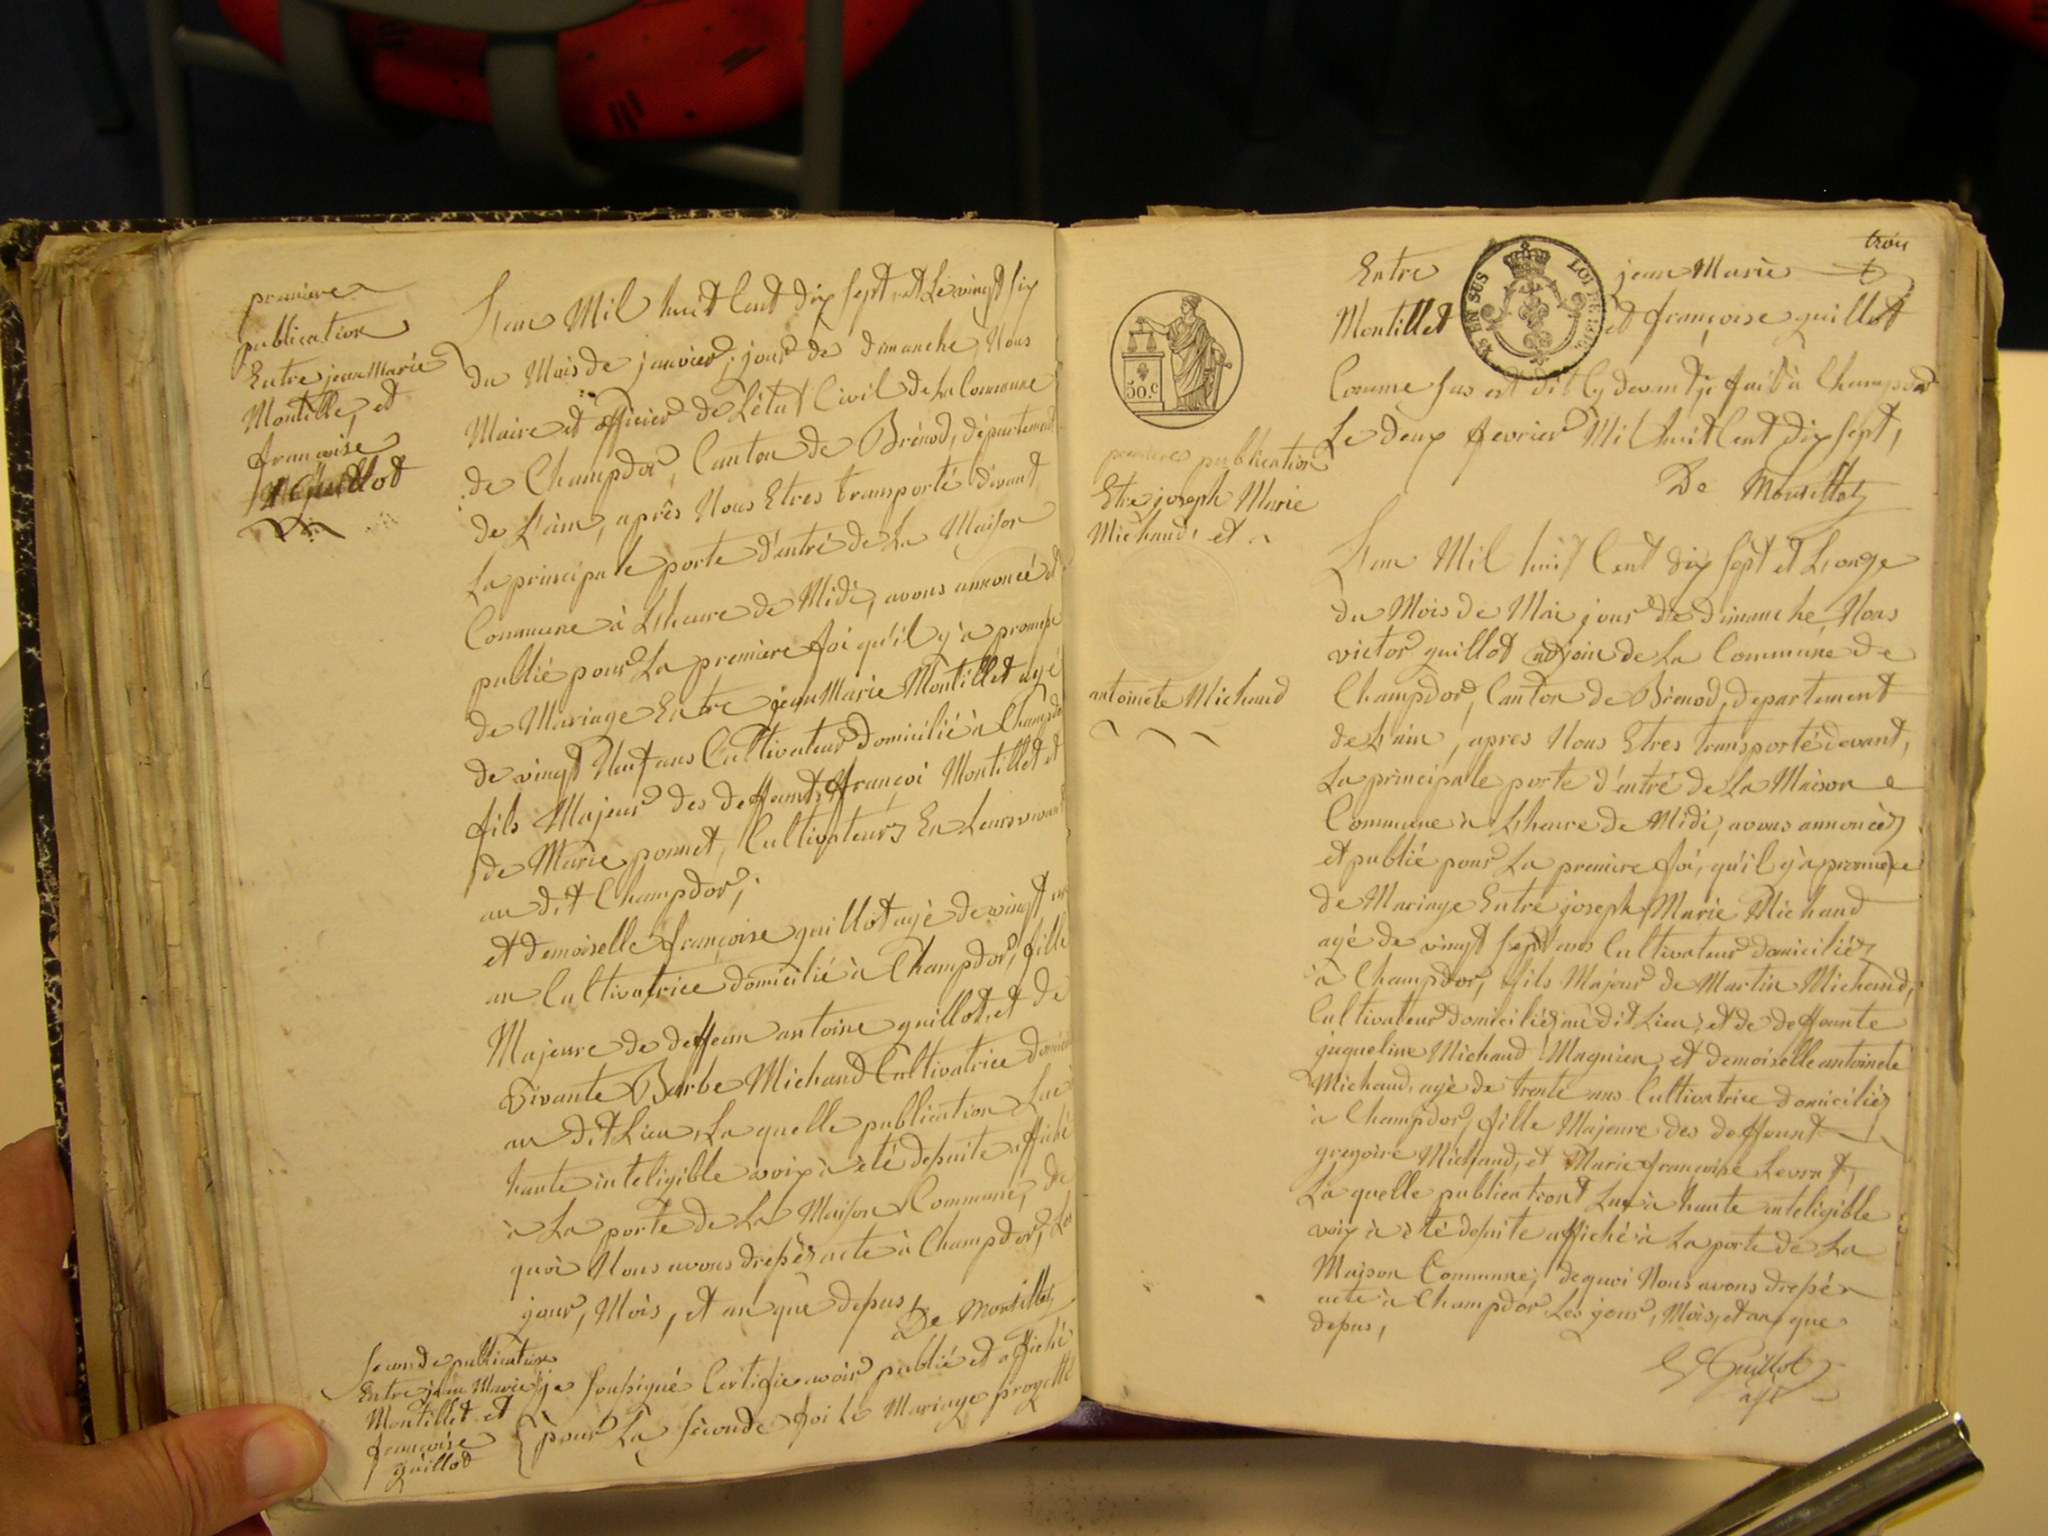 premiere
publication
Entre jean Marie
Montillet, et
françoise
Guillot
L'an Mil huit Cent dix sept et Le vingt six
du Mois de janvier, jour de dimanche, Nous
Maire et officier de L'état Civil de La Commune
de Champdor, Canton de Brénod, département
de L'ain, après Nous Etres transporté devant
La principale porte d'entré de La Maison
Commune à L'heure de Midi, avons annoncé et
publié pour La premiere foi qu'il y'a promesse
de Mariage Entre jean Marie Montillet agé
de vingt Neuf ans Cultivateur domicilié à Champdor
fils Majeur des deffunts françoi Montillet et
de Marie ponnet, Cultivateurs En Leurs vivant
au dit Champdor,
et demoiselle françoise guillot agé de vingt un
an Cultivatrice domicilié à Champdor, fille
Majeure de deffeun antoine guillot, et de
vivante Barbe Michaud Cultivatrice domicilié
au dit Lieu, La quelle publication Lue à
haute inteligible voix à été desuite affiché
à La porte de La Maison Commune, de
quoi Nous avons dressés acte à Champdor, Les
jour, Mois, et an que desus,
De Montillet
seconde publication
Entre jean Marie
Montillet et
françoise
guillot
je soussigné Certifie avoir publié et affiché
pour La séconde foi le Mariage progetté
trois
Entre jean Marie
Montillet et françoise guillot
S EN SUS
LOI DE 1816
Comme sus est dit Cy devant, fait à Champdor
Le deux fevrier Mil huit Cent dix sept,
De Montillet
50.c
premiere publication
Etre joseph Marie
Michaud, et
antoinete Michaud
L'an Mil huit Cent dix sept et L'onze
du Mois de Mai jour de dimanche, Nous
victor guillot adjoin de La Commune de
Champdor, Canton de Brénod, departement
de L'ain, apres Nous Etres transporté devant,
La principale porte d'entré de La Maison
Commune à L'heure de Midi, avons annoncés
et publié pour La premire foi, qu'il y'a promesse
de Mariage Entre joseph Marie Michaud
agé de vingt sept ans Cultivateur domiciliés
à Champdor, fils Majeur de Martin Michaud,
Cultivateur domiciliés au dit Lieu, et de deffeunte
jaqueline Michaud Magnien, et demoiselle antoinete
Michaud, agé de trente ans Cultivatrice domiciliés
à Champdor, fille Majeure des deffeunt
gregoire Michaud, et Marie françoise Levrat,
La quelle publicationt Lue à haute inteligible
voix à été desuite affiché à La porte de La
Maison Commune, de quoi Nous avons dressé
acte à Champdor Les jour, Mois, et an que
desus,
Guillot
ajt